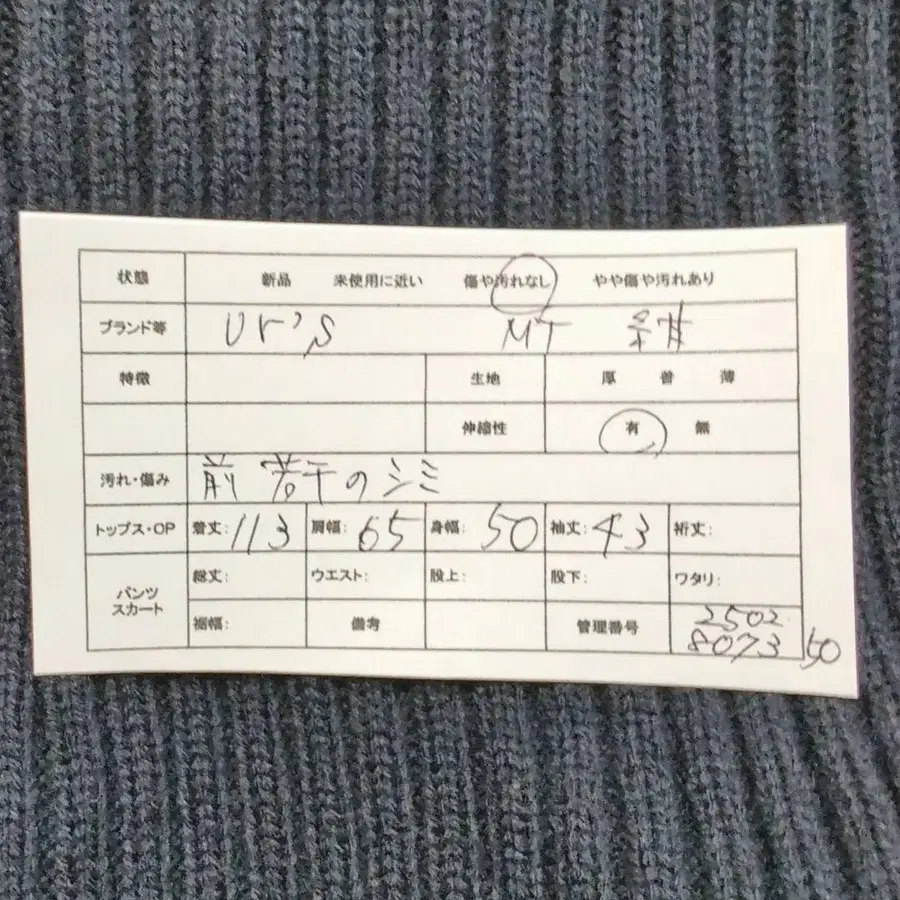 状態 新品 未使用に近い 傷や汚れなし やや傷や汚れあり
ブランド等 ur's MT 紺
特徴 生地 厚 普 薄
伸縮性 有 無
汚れ・傷み 前 若干のシミ
トップス・OP 着丈: 113 肩幅: 65 身幅: 50 袖丈: 43 裄丈:
パンツ スカート 総丈: ウエスト: 股上: 股下: ワタリ:
裾幅: 備考 管理番号 2502 8073 50